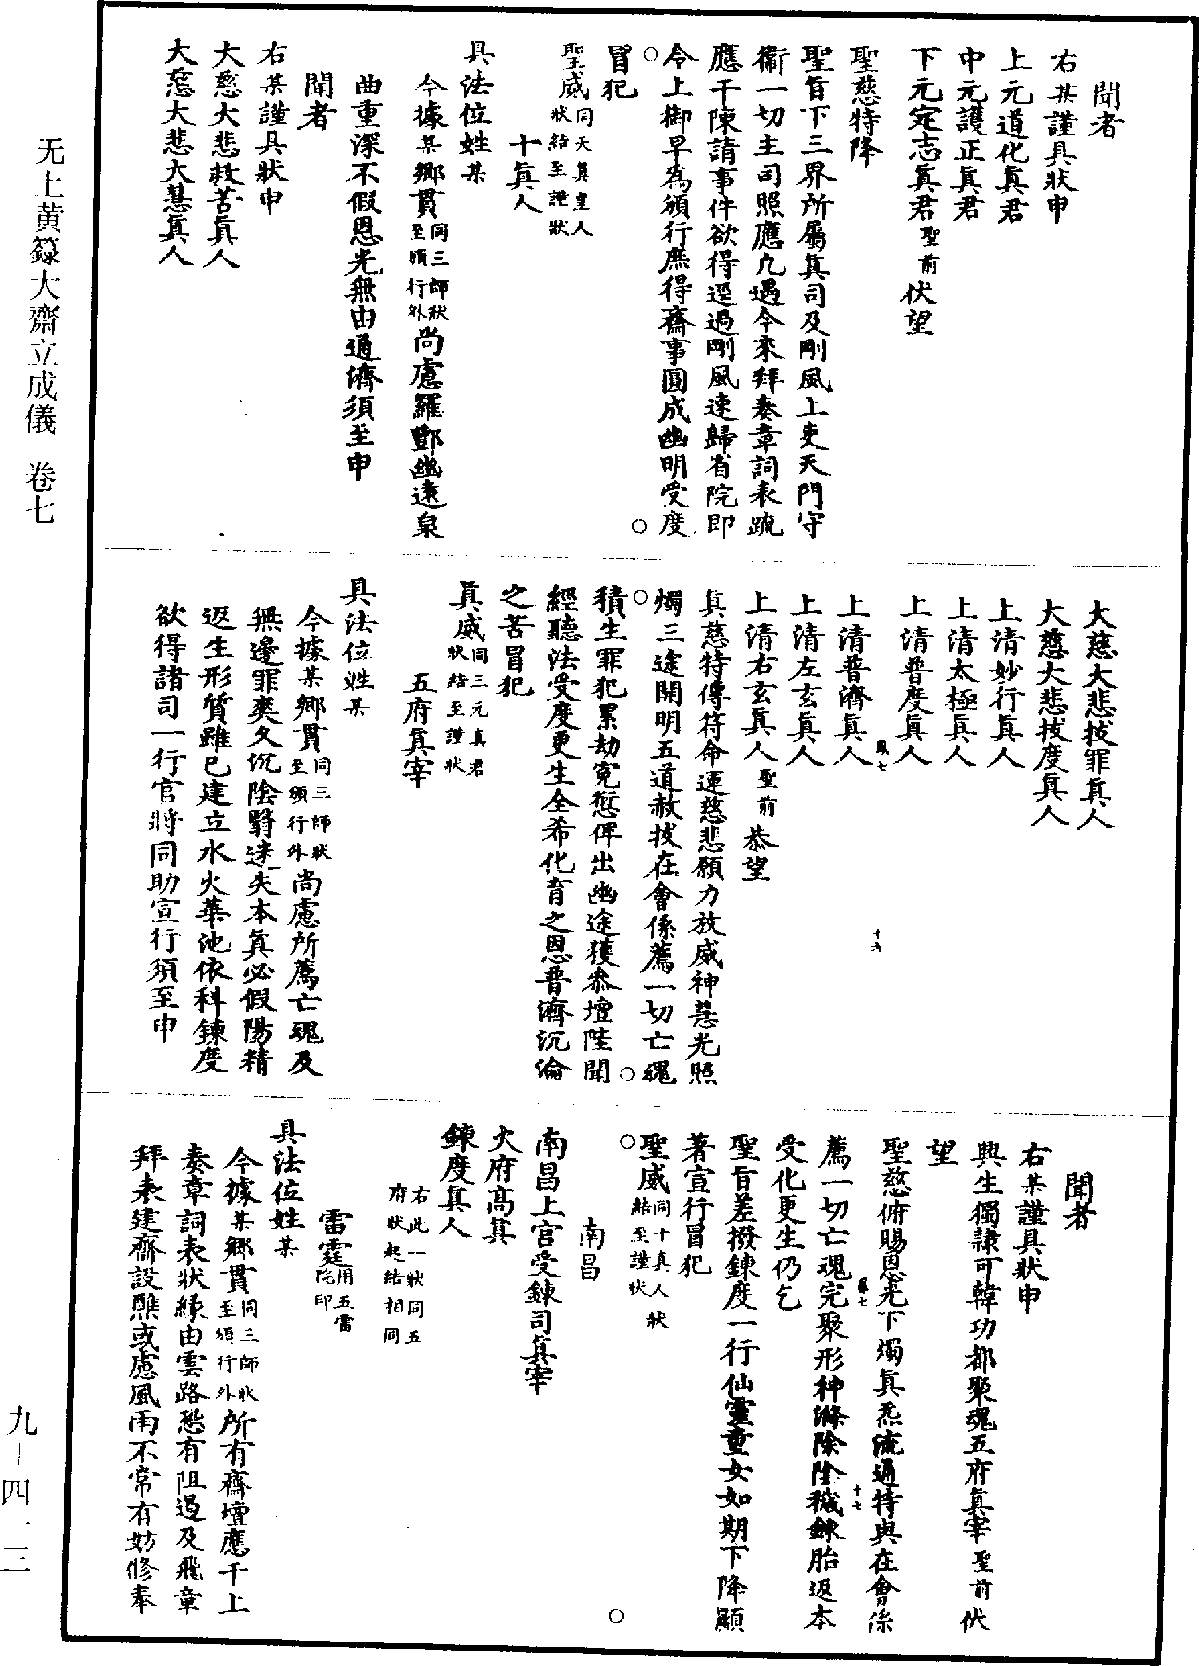 聞者
右某謹具狀申
上元道化真君
中元護正真君
下元定志真君聖前伏望
聖慈特降
聖旨下三界所屬真司及剛風上吏天門守
衛一切主司照應凡遇今來拜奏章詞表疏
應干陳請事件欲得逕過剛風速歸省院即
今上御早為頒行庶得齋事圓成幽明受度
冒犯
聖威同天真皇人狀結至謹狀
十真人
具法位姓某
今據某鄉貫同三師狀至頒行外尚慮羅酆幽遠泉
曲重深不假恩光無由通濟須至申
聞者
右某謹具狀申
大慈大悲救苦真人
大慈大悲大慧真人
大慈大悲拔罪真人
大慈大悲拔度真人
上清妙行真人
上清太極真人
上清普度真人
上清普濟真人
上清左玄真人
上清右玄真人聖前恭望
真慈特傳符命運慈悲願力放威神慧光照
燭三途開明五道赦拔在會係薦一切亡魂
積生罪犯累劫冤愆俾出幽途獲忝壇陛聞
經聽法受度更生全希化育之恩普濟沉淪
之苦冒犯
真威同三元真君狀結至謹狀
五府真宰
具法位姓某
今據某鄉貫同三師狀至頒行外尚慮所薦亡魂及
無邊罪爽久沉陰翳迷失本真必假陽精
返生形質雖已建立水火華池依科鍊度
欲得諸司一行官將同助宣行須至申
聞者
右某謹具狀申
興生獨隷可韓功都聚魂五府真宰聖前伏
望
聖慈俯賜恩光下燭真炁流通特與在會係
薦一切亡魂完聚形神滌除陰穢鍊胎返本
受化更生仍乞
聖旨差撥鍊度一行仙靈童女如期下降顯
著宣行冒犯
聖威同十真人狀結至謹狀
南昌
南昌上宮受鍊司真宰
火府高真
鍊度真人
右此一狀同五府狀起結相同
雷霆用五雷院印
具法位姓某
今據某鄉貫同三師狀至頒行外所有齋壇應干上
奏章詞表狀縁由雲路恐有阻遏及飛章
拜表建齋設醮或慮風雨不常有妨修奉
无上黄籙大齋立成儀 卷七
九－四一三